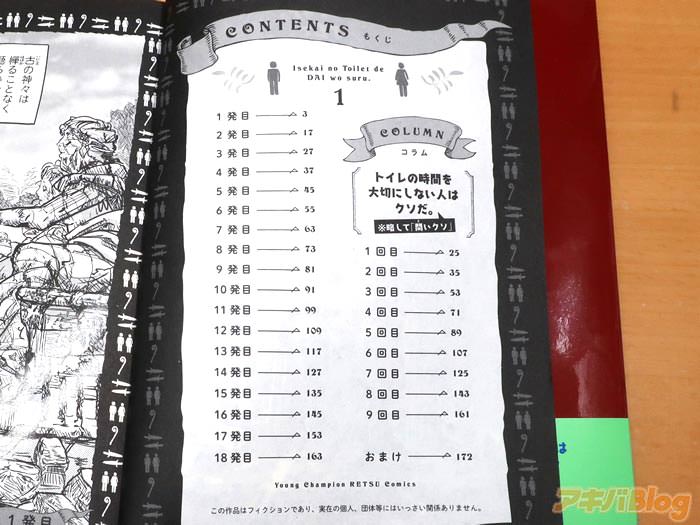 古の神々は
憚ることなく
1発目
CONTENTS もくじ
Isekai no Toilet de
DAI wo suru.
1
1発目 3
2発目 17
3発目 27
4発目 37
5発目 45
6発目 55
7発目 63
8発目 73
9発目 81
10発目 91
11発目 99
12発目 109
13発目 117
14発目 127
15発目 135
16発目 145
17発目 153
18発目 163
COLUMN
コラム
トイレの時間を
大切にしない人は
クソだ。
※略して「問いクソ」
1回目 25
2回目 35
3回目 53
4回目 71
5回目 89
6回目 107
7回目 125
8回目 143
9回目 161
おまけ 172
Young Champion RETSU Comics
この作品はフィクションであり、実在の個人、団体等にはいっさい関係ありません。
は
アキバBlog